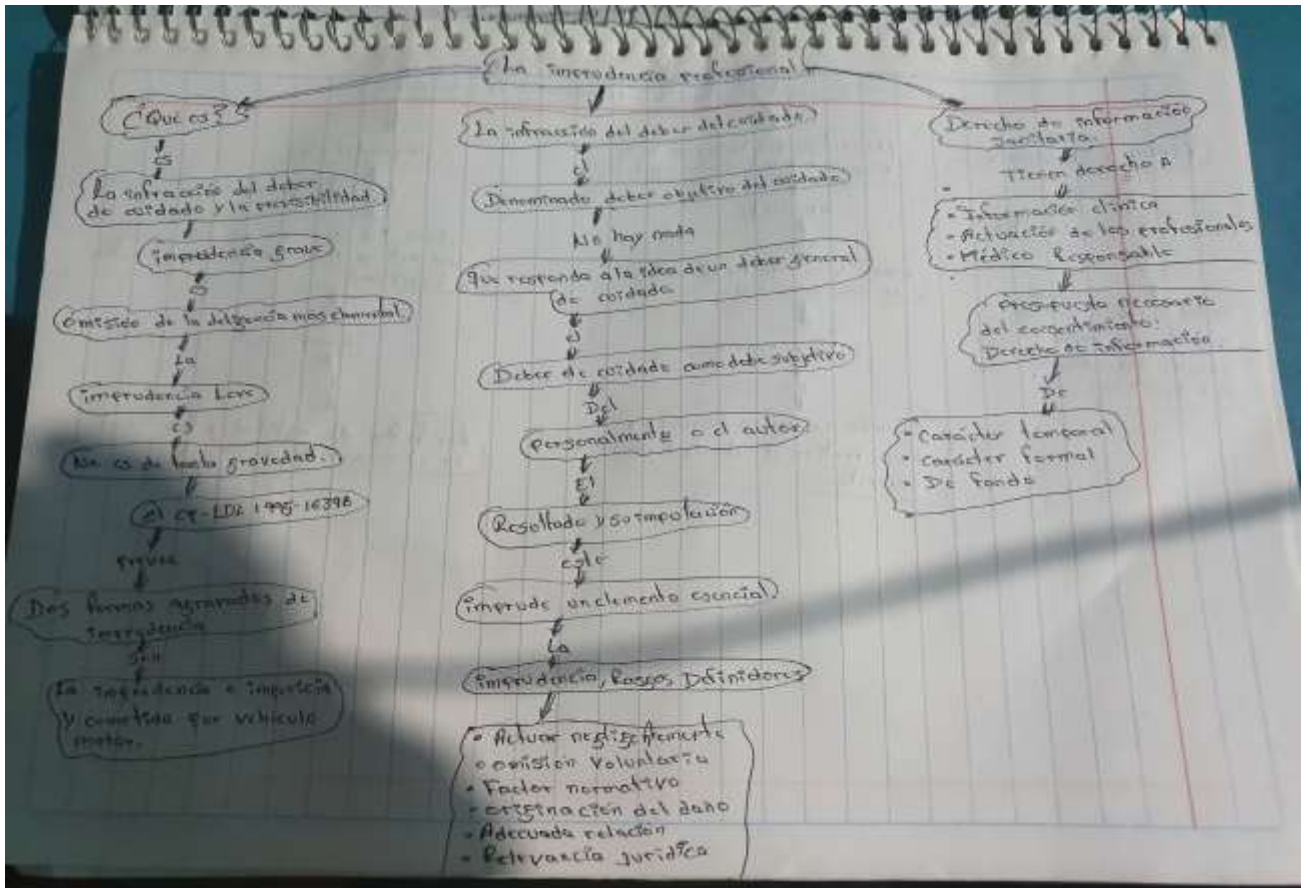 La imprudencia profesional
¿Que es?
es
La infracción del deber
de cuidado y la previsibilidad
imprudencia grave
es
omisión de la deligencia más elemental
La
imprudencia Leve
es
No es de tanta gravedad.
el CP-LDL 1995-16398
Dos formas agravadas de
imprudencia
son
La imprudencia e impericia
y cometida por vehículo
motor.
La infracción del deber del cuidado
el
Denominado deber objetivo del cuidado
No hay nada
Que responda a la idea de un deber general
de cuidado
el
Deber de cuidado como debe subjetivo
Del
personalmente o el autor
El
Resultado y su imputación
este
imprude un elemento esencial
La
imprudencia, Rasgos Definidores
• Actuar negligentemente
o omisión voluntaria
• Factor normativo
• originación del daño
• Adecuada relación
• Relevancia jurídica
Derecho de información
sanitaria.
Tienen derecho a
• Información clínica
• Actuación de los profesionales
• Médico Responsable
presupuesto necesario
del consentimiento:
Derecho de información.
De
• Carácter temporal
• carácter formal
• De fondo